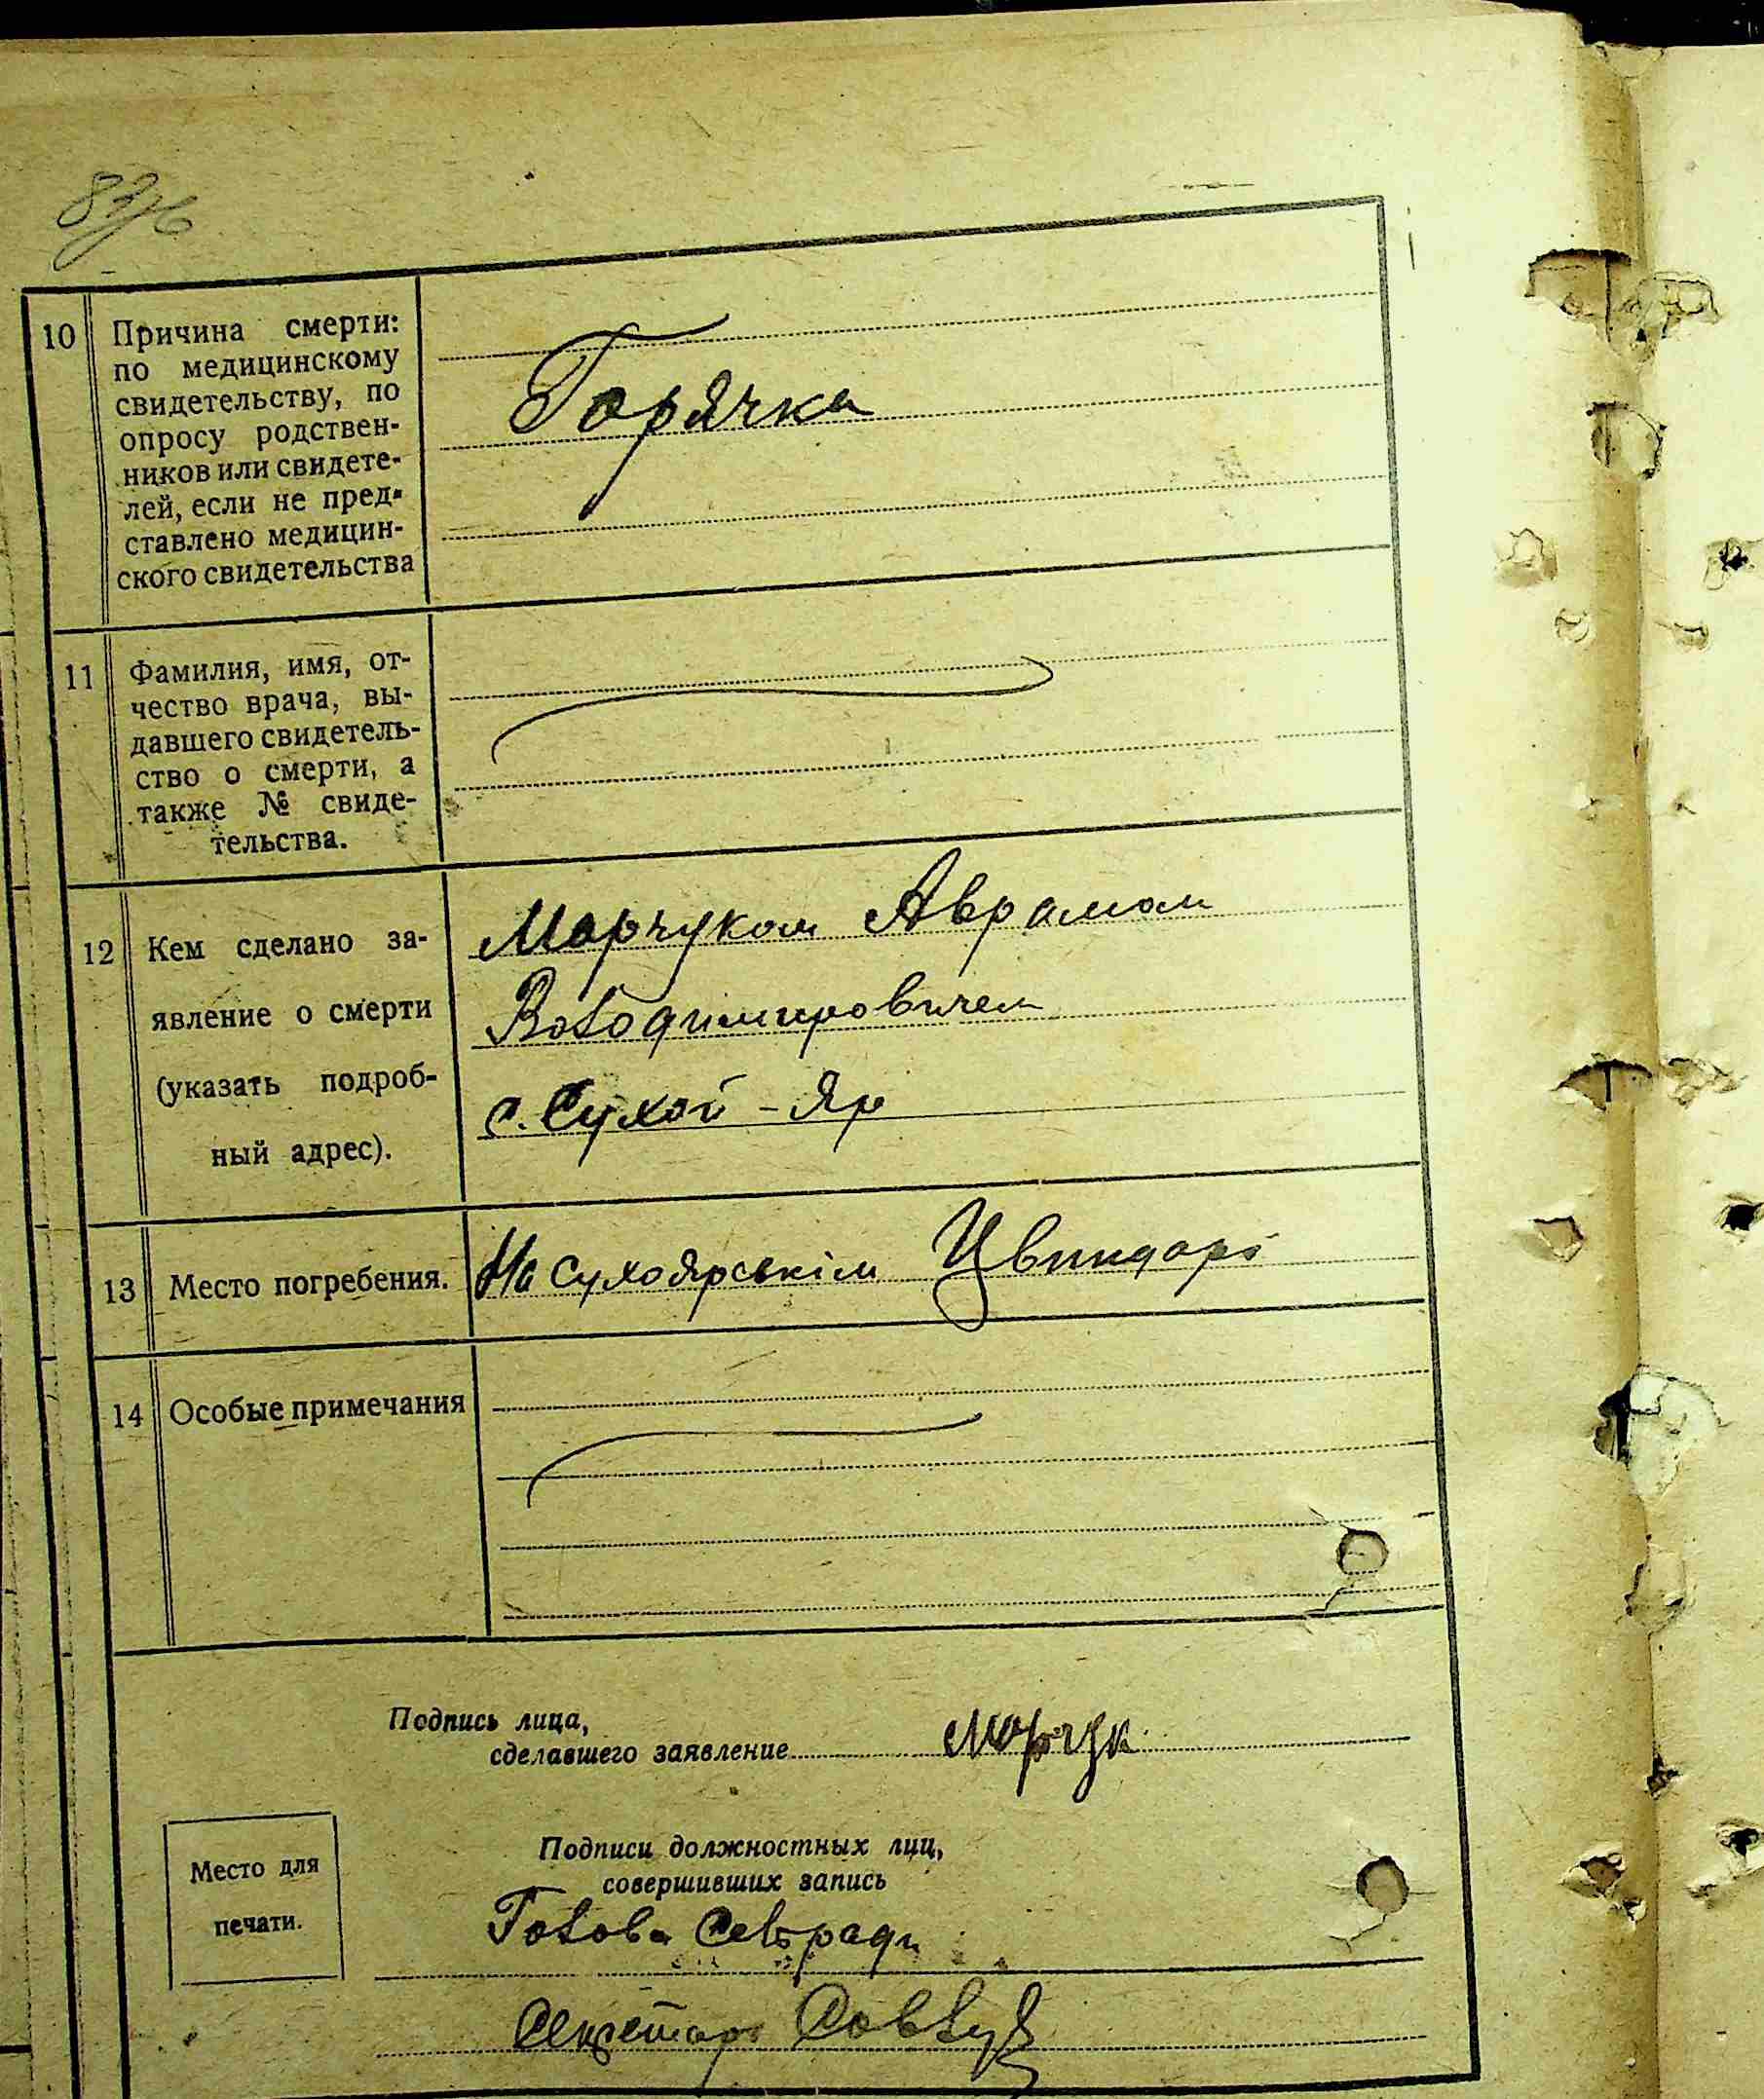 10 Причина смерти:
по медицинскому
свидетельству, по
опросу родствен-
ников или свидете-
лей, если не пред-
ставлено медицин-
ского свидетельства
Горячка
11 Фамилия, имя, от-
чество врача, вы-
давшего свидетель-
ство о смерти, а
также № свиде-
тельства.
12 Кем сделано за-
явление о смерти
(указать подроб-
ный адрес).
Марчуком Аврамом
Володимировичем
с. Сухой-Яр
13 Место погребения. На Сухоярськім Цвинтарі
14 Особые примечания
Подпись лица,
сделавшего заявление Марчук
Место для
печати.
Подписи должностных лиц,
совершивших запись
Голова Сельради
Секретарь